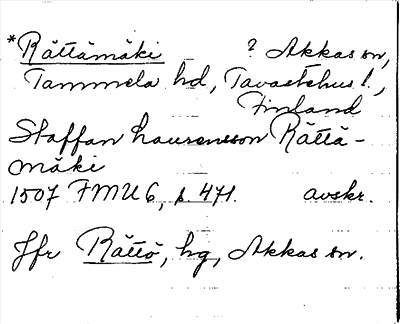 *Rättämäki ? Akkas sn,
Tammela hd, Tavastehus l.,
Finland
Staffan Laurensson Rättä-
mäki
1507 FMU 6, s. 471. avskr.
Jfr Rättö, hg, Akkas sn.